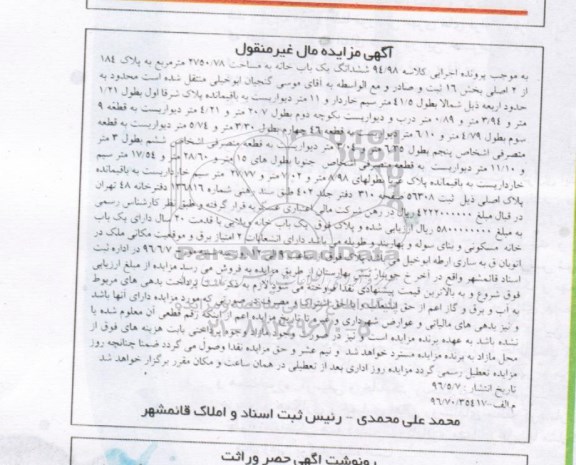 آگهی مزایده مال غیرمنقول
به موجب پرونده اجرایی کلاسه ۹۴/۹۸ ششدانگ یک باب خانه به مساحت ۲۷۵۰/۷۸ مترمربع به پلاک ۱۸۴
از ۲ اصلی بخش ۱۶ ثبت و صادر و مع الواسطه به آقای موسی گنجیان ابوخیلی منتقل شده است محدود به
حدود اربعه ذیل شمالا بطول ۴۱/۵ متر سیم خاردار و ۱۱ متر دیواریست به باقیمانده پلاک شرقا اول بطول ۱/۲۱
متر و ۳/۹۴ متر و ۰/۸۹ متر درب و دیواریست بکوچه دوم بطول ۲۰۷ متر و ۴/۲۱ متر دیواریست به قطعه ۹
سوم بطول ۴/۷۹ متر و ۶/۱۰ متر دیواریست به قطعه ۴۶ چهارم بطول ۳/۳۰ متر و ۵/۷۴ متر دیواریست به قطعه
متصرفی اشخاص پنجم بطول ۶/۳۵ متر و متر دیواریست به قطعه متصرفی اشخاص ششم بطول ۳ متر
و ۱۰/۱۱ متر دیواریست به قطعه متصرفی اشخاص جنوبا بطول های ۱۵ متر و ۲۸/۶۰ متر و ۱۷/۵۴ متر سیم
خارداریست به باقیمانده پلاک غربا بطولهای ۸/۹۸ متر و متر و ۲۷/۷۷ متر سیم خارداریست به باقیمانده
پلاک اصلی ذیل ثبت ۵۶۳۰۸ صفحه ۳۱۰ دفتر جلد ۴۰۲ طبق سند رهنی شماره ۱۳۶۸۱۶ دفترخانه ۴۸ تهران
در قبال مبلغ ۴۲۲۲۰۰۰۰۰۰ ریال در رهن شرکت مالی اعتباری قرار گرفته و طبق نظر کارشناس رسمی
به مبلغ ۵۸۰۰۰۰۰۰۰۰ ریال ارزیابی شده و پلاک فوق یک باب خانه ویلایی با قدمت ۲۰ سال دارای یک باب
خانه مسکونی و بنای سوله و بهاربند و طویله می باشد دارای انشعابات ۲ امتیاز برق و موقعیت مکانی ملک در
اتوبان ق به ساری ارطه ابوخیل ۹۶/۶/۷ در اداره ثبت
اسناد قائمشهر واقع در بهارستان از طریق مزایده به فروش می رسد مزایده از مبلغ ارزیابی
فوق شروع و به بالاترین قیمت پیشنهادی نقدا فروخته می شود لازم به ذکر است پرداخت بدهی های مربوط
به آب و برق و گاز اعم از حق انشعاب و یا حق اشتراک و مصرف در صورتی که مورد مزایده دارای آنها باشد
و نیز بدهی های مالیاتی و عوارض شهرداری و غیره تا تاریخ مزایده اعم از اینکه رقم قطعی آن معلوم شده یا
نشده باشد به عهده برنده مزایده است و نیز در صورت وجود مازاد وجوه پرداختی بابت هزینه های فوق از
محل مازاد به برنده مزایده مسترد خواهد شد و نیم عشر و حق مزایده نقدا وصول می گردد ضمنا چنانچه روز
مزایده تعطیل رسمی گردد مزایده روز اداری بعد از تعطیلی در همان ساعت و مکان مقرر برگزار خواهد شد
تاریخ انتشار : ۹۶/۵/۷
م الف-۹۶/۷۰/۳۵۴۱۷
محمد علی محمدی – رئیس ثبت اسناد و املاک قائمشهر
رونوشت آگهی حصر وراثت
ParsNamadData